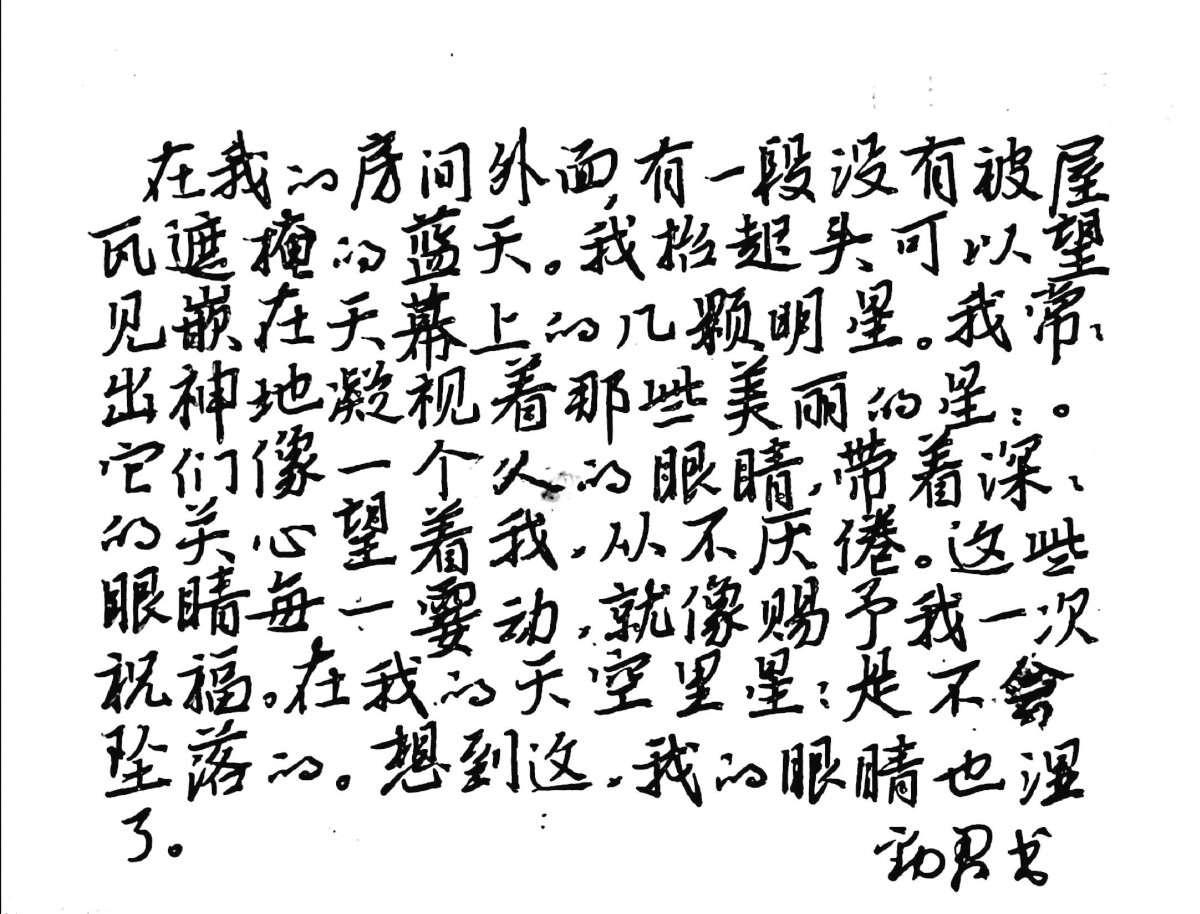 在我的房间外面,有一段没有被屋
瓦遮掩的蓝天。我抬起头可以望
见嵌在天幕上的几颗明星。我常:
出神地凝视着那些美丽的星:。
它们像一个人的眼睛,带着深:
的关心望着我,从不厌倦。这些
眼睛每一霎动,就像赐予我一次
祝福。在我的天空里星:是不会
坠落的。想到这,我的眼睛也湿
了。
书